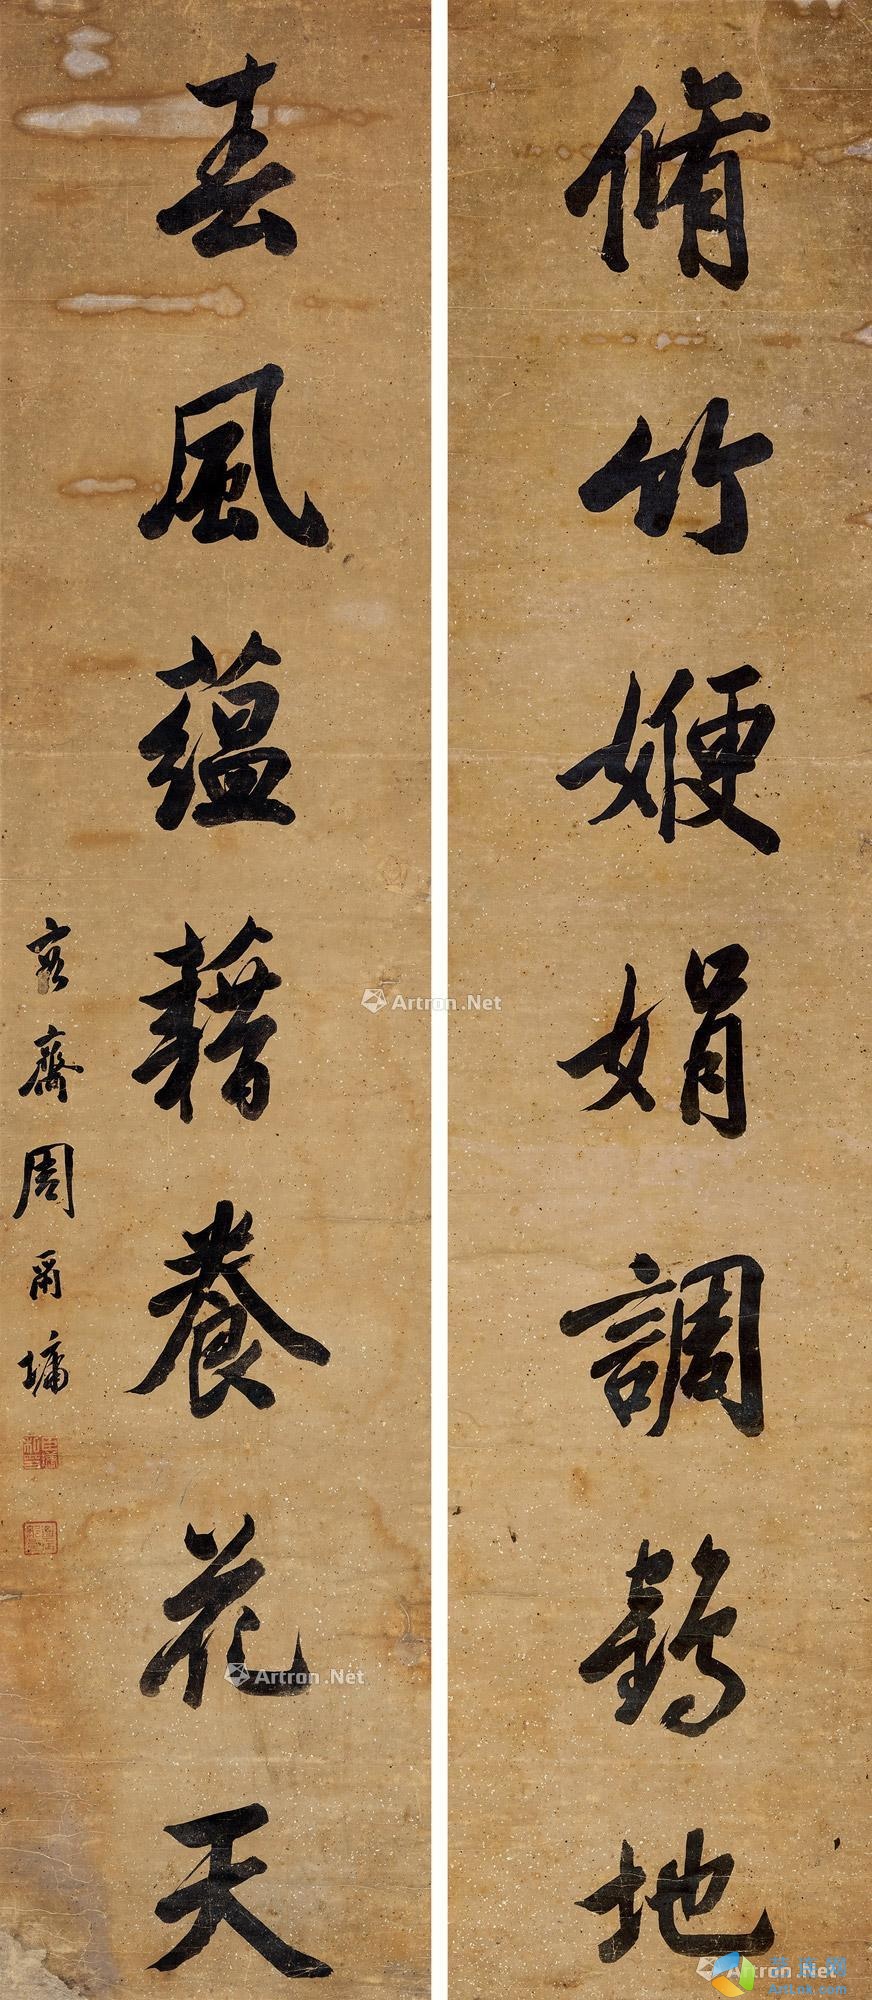 脩竹㛹娟調鶴地
春風蘊藉養花天
容齋周爾墉
Artron.Net
Artron.Net
Artron.Net